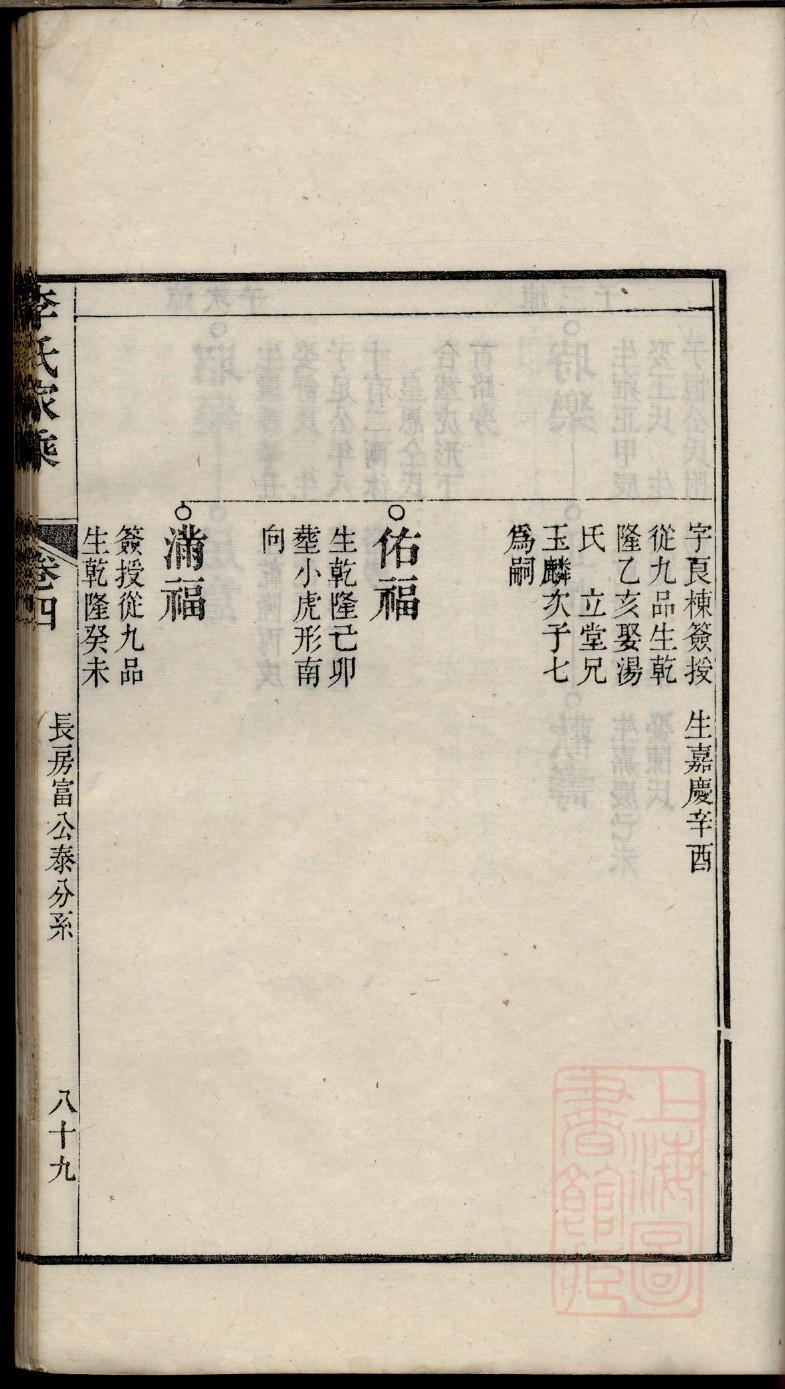 字良棟簽授
從九品生乾
隆乙亥娶湯
氏　立堂兄
玉麟次子七
爲嗣
生嘉慶辛酉
佑福
生乾隆己卯
塟小虎形南
向
滿福
簽授從九品
生乾隆癸未
李氏家乘
卷四
長房富公泰分系
八十九
上海圖
書館藏